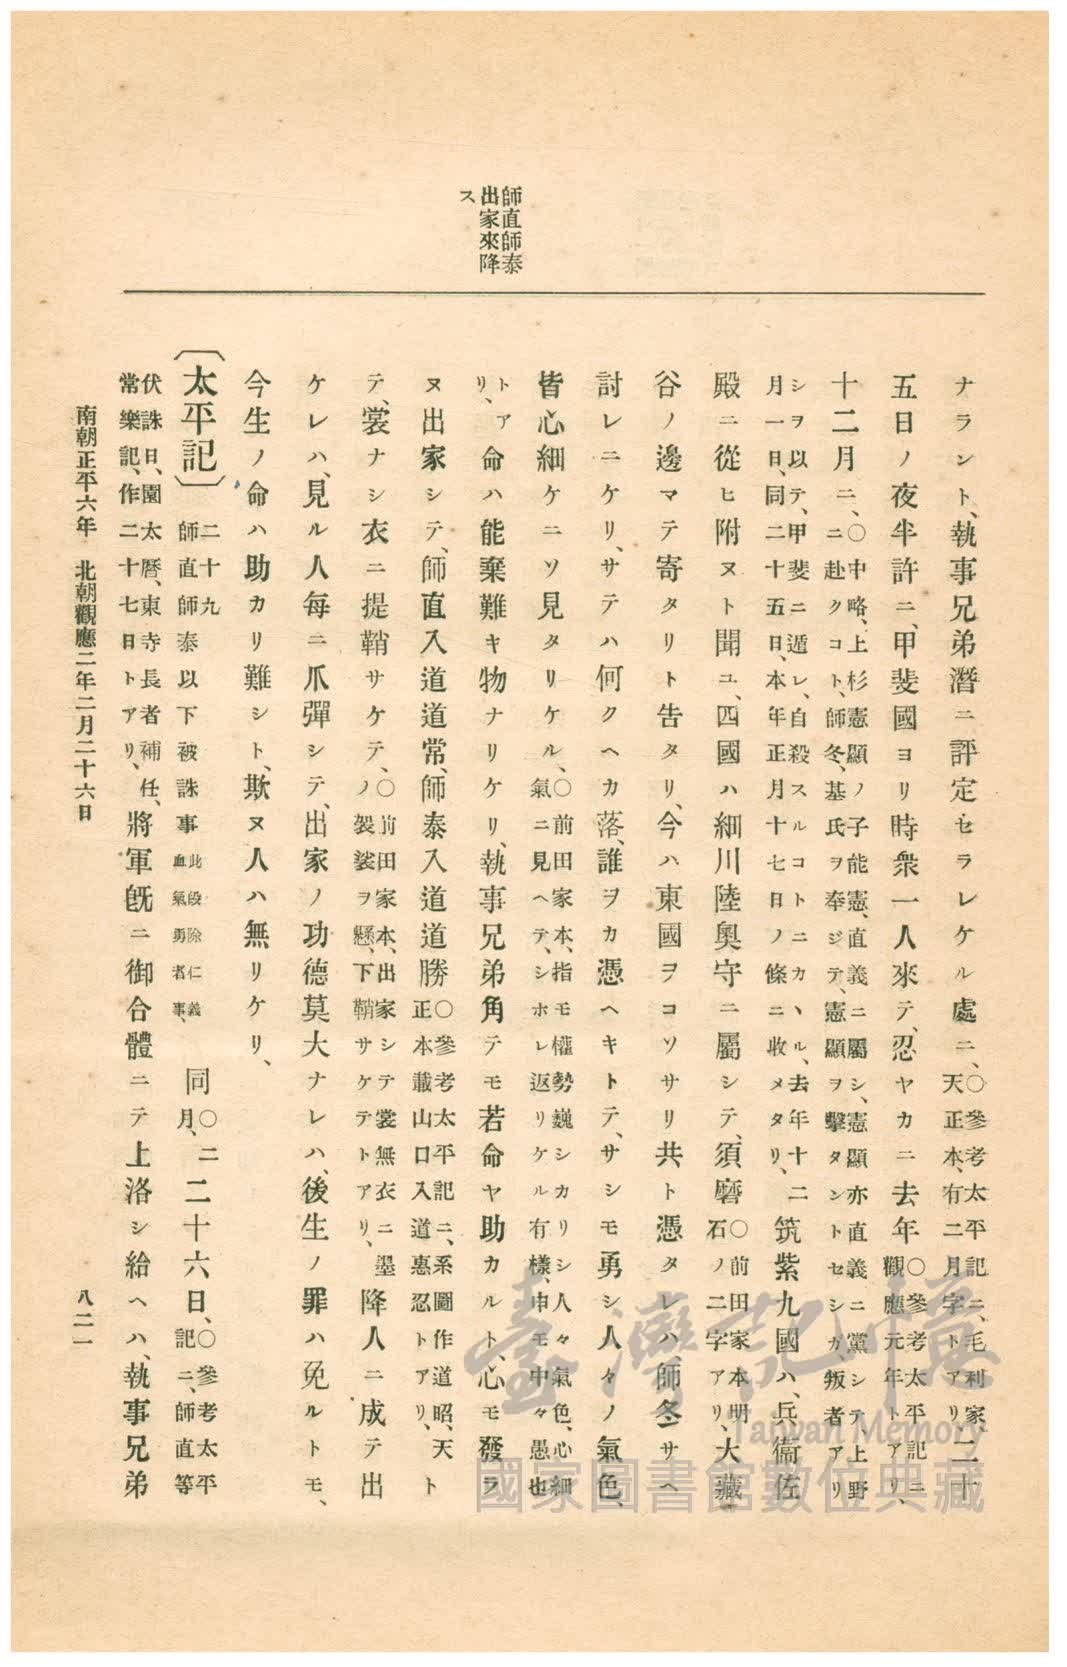 師直師泰
出家來降
ス
ナラント、執事兄弟潛ニ評定セラレケル處ニ、〇參考太平記ニ、毛利家、
天正本、有二月字トアリ、二十
五日ノ夜半許ニ、甲斐國ヨリ時衆一人來テ、忍ヤカニ去年〇參考太平記ニ
觀應元年トアリ、
十二月ニ、〇中略、上杉憲顯ノ子能憲、直義ニ屬シ、憲顯亦直義ニ黨シテ、上野
ニ赴クコト、師冬、基氏ヲ奉ジテ、憲顯ヲ擊タントセシガ、叛者アリ
シヲ以テ、甲斐ニ遁レ、自殺スルコトニカヽル、去年十二
月一日、同二十五日、本年正月十七日ノ條ニ收メタリ、筑紫九國ハ、兵衞佐
殿ニ從ヒ附ヌト聞ユ、四國ハ細川陸奧守ニ屬シテ、須磨〇前田家本明
石ノ二字アリ、大藏
谷ノ邊マテ寄タリト告タリ、今ハ東國ヲコソサリ共ト憑タレハ、師冬サヘ
討レニケリ、サテハ何クヘカ落、誰ヲカ憑ヘキトテ、サシモ勇シ人々ノ氣色、
皆心細ケニソ見タリケル、〇前田家本、指モ權勢巍シカリシ人々氣色、心細
氣ニ見ヘテ、シホレ返リケル有樣、申モ中々愚也
トア
リ、命ハ能棄難キ物ナリケリ、執事兄弟角テモ若命ヤ助カルト、心モ發ラ
ヌ出家シテ、師直入道道常、師泰入道道勝〇參考太平記ニ、系圖作道昭、天
正本載山口入道惠忍トアリ、ト
テ、裳ナシ衣ニ提鞘サケテ、〇前田家本、出家シテ裳無衣ニ墨
ノ袈裟ヲ懸、下鞘サケテトアリ、降人ニ成テ出
ケレハ、見ル人每ニ爪彈シテ、出家ノ功德莫大ナレハ、後生ノ罪ハ免ルトモ、
今生ノ命ハ助カリ難シト、欺ヌ人ハ無リケリ、
〔太平記〕二十九
師直師泰以下被誅事此段除仁義
血氣勇者事、同〇二
月、二十六日、〇參考太平
記ニ、師直等
伏誅日、園太曆、東寺長者補任、
常樂記、作二十七日トアリ、將軍旣ニ御合體ニテ上洛シ給ヘハ、執事兄弟
南朝正平六年 北朝觀應二年二月二十六日
八二一
臺灣記憶
Taiwan Memory
國家圖書館數位典藏